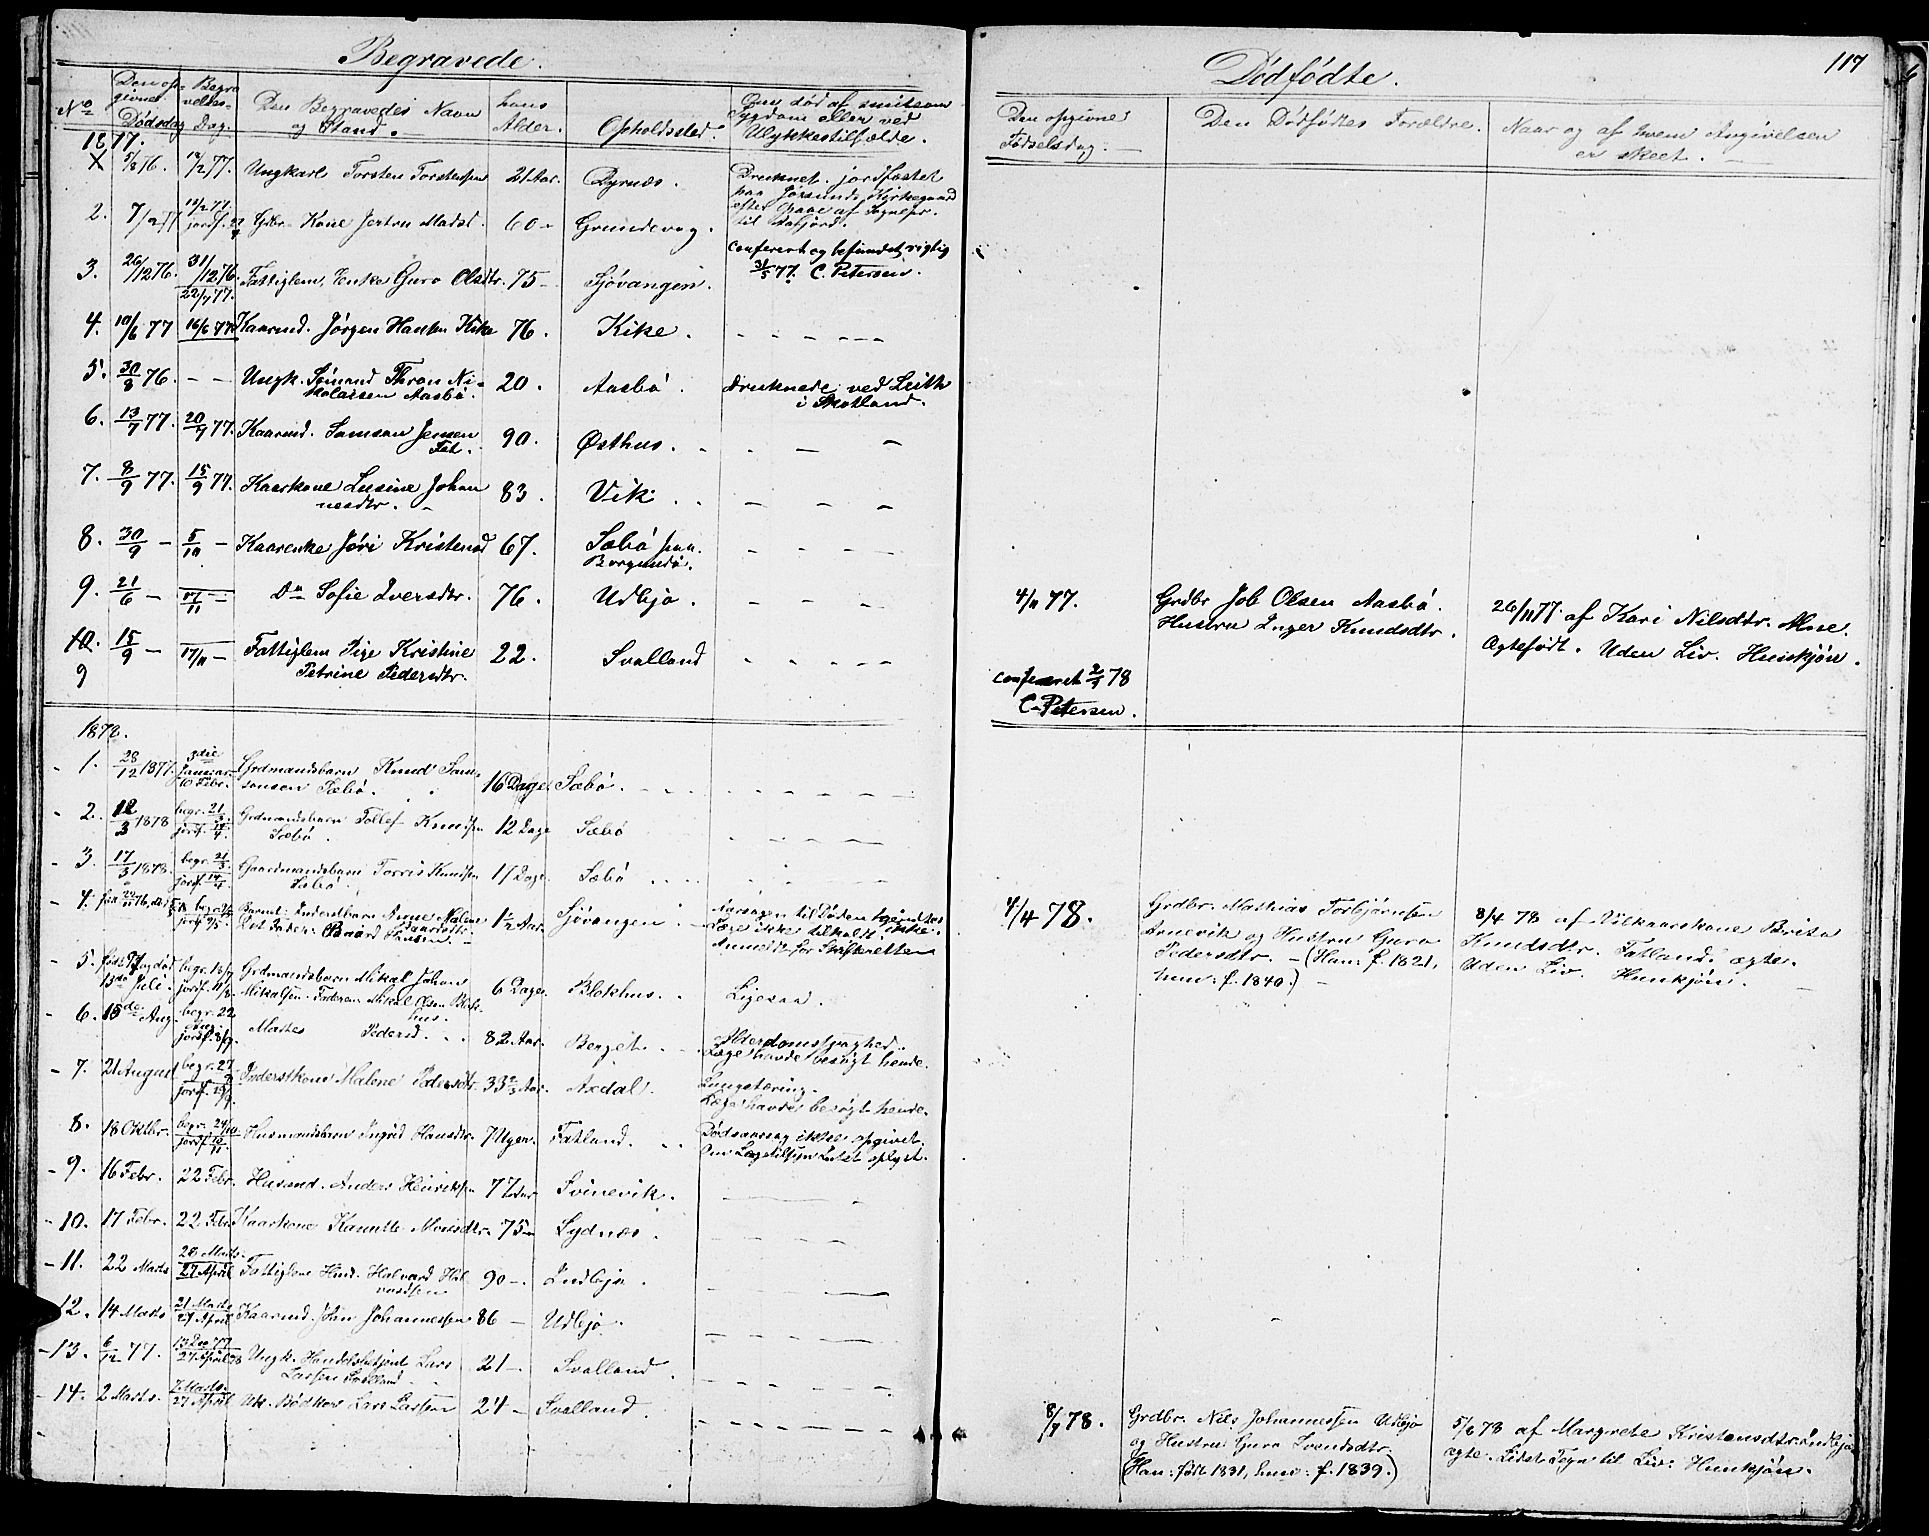 Begravede.
No
Den op-
givne
Dødsdag
Begra
velses-
Dag.
Den Begravedes Navn
og Stand.
hans
Alder.
Opholdssted.
Om død af smitsom
Sygdom eller ved
Ulykkestilfælde.
1877.
X 5/8 76. 18/2 77. Ungkarl Torsten Torstensen 21 Aar. Dyrnæs. Druknet. jordfæstet
paa Jøsunds Kirkegaard
efter Opgave af Sognepr.
til Aafjord.
2. 7/2 77 Gdbr. Kone Jertru Madsd. 60 - Grundevag.
conferert og befundet rigtig
31/5 77. C. Petersen.
3. 26/12 76. 31/12 76. Fattiglem, Enke Guro Olsdtr. 75 - Sjøvangen.
22/4 77.
4. 10/6 77 16/6 77 Kaarmd. Jørgen Hansen Kike 76. Kike. - - - - -
5. 30/8 76. - - Ungk. Sømand Thron Ni-
kolaisen Aasbø. 20. Aasbø. druknede ved Leith
i Skotland.
6. 13/7 77. 20/7 77. Kaarmd. Samson Jensen
Fat. 90. Østhus. . - -
7. 8/9 77. 15/9 77. Kaarkone Lusine Johan
nesdtr. 83. Vik. . - - -
8. 30/9 - 5/10 - Kaarenke Jøri Kristensd 67. Sæbø paa
Borgundø. - - - -
9. 21/6 - 17/11 - Do Sofie Iversdtr. 76. Udbjo. - - - -
10. 15/9 - 17/11 - Fattiglem Pige Kristine
Petrine Pedersdtr. 22. Svalland - - - - -
9
1878.
- 1. 28/12 1877. 3die
Januar
10 Febr. Grdmandsbarn Knud Sam-
sonsen Sæbø. 16 Dage. Sæbø.
- 2. 12/3 1878 begr. 21/3.
jordf. 14/4. Grdmandsbarn Tollef Knudsen
Sæbø. 12 Dage Sæbø
- 3. 17/3 1878. begr. 21/3.
jordf. 14/4 Gaardmandsbarn Torris Knudsen
Sæbø. 17 Dage. Sæbø
- 4. Inderstbarn Anne Malene
Baardsdtr.
Baard Hansen. 1½ Aar. Sjøvangen Aarsagen til Døden kjendtes
Læge ikke tilkaldt ikke.
Anmeldt for Skifteretten
- 5. 13de Juli. begr. 18/7
jordf. 11/8. Grdmandsbarn Mikal Johan
Mikalsen. Faderen: Mikal Olsen Blok-
hus. 6 Dage. Blokhus. Ligesaa.
- 6. 15de Aug. begr. 22
Aug.
jordf. 8/9. Marte Pedersd. 82 Aar. Berget. Alderdomssvaghed.
Læge havde besøgt hende.
- 7. 21 August begr. 27/8
jordf. 19/9. Inderstkone Malene Pedersdtr. 33⅔ Aar. Axdal. Lungetæring.
Læge havde besøgt hende.
8. 18 Oktbr. begr. 24/10
jordf. 10/11. Husmandsbarn Ingrid Hansdtr. 7 Ugen. Fatland. Dødsaarsag ikke opgivet.
Om Lægetilsyn Intet oplyst.
- 9. 16 Febr. 22 Febr. Husmd. Anders Henriksen 77 Aar Svinevik.
- 10. 17 Febr. 22 Febr Kaarkone Kanutte Monsdtr. 75 - Sydnæs.
- 11. 22 Marts 28 Marts.
27 April Fattiglem Hmd. Halvard Hal
vardsen 90 -. Indbjo.
12. 14 Marts 21 Marts
27 April Kaarmd. John Johannessen 86 - Udbjo.
- 13. 6/12 77. 13 Dec 77
27 April 78 Ungk. Handelsbetjent Lars
Larsen Svalland 21 -. Svalland.
- 14. 2 Marts. 7 Marts.
27 April Ugk. Bødker Lars Larsen 24 - Svalland.
Dødfødte.
117
Den opgivne
Fødselsdag.
Den Dødfødtes Forældre.
Naar og af hvem Angivelsen
er skeet.
4/11 77. Grdbr. Job Olsen Aasbø.
Hustru Inger Knudsdtr. 26/11 77. af Kari Nilsdtr. Moe.
Ægtefødt. Uden Liv. Hunkjøn.
conferert 2/1 78
C. Petersen.
4/4 78. Grdbr. Mathias Torbjørnsen
Arnevik og Hustru Guro
Pedersdtr. - (Han: f. 1821,
hun: f. 1840.) 8/4 78 af Vilkaarskone Brita
Knudsdtr. Fatland. ægte.
Uden Liv. Hunkjøn.
8/7 78. Grdbr. Nils Johannessen Udbjo
og Hustru Guro Svendsdtr.
(Han: født 1831, hun: f. 1839.) 5/8 78 af Margrete Kristensdtr. Indbjo
ægte. Lidet Tegn til Liv. Hunkjøn.